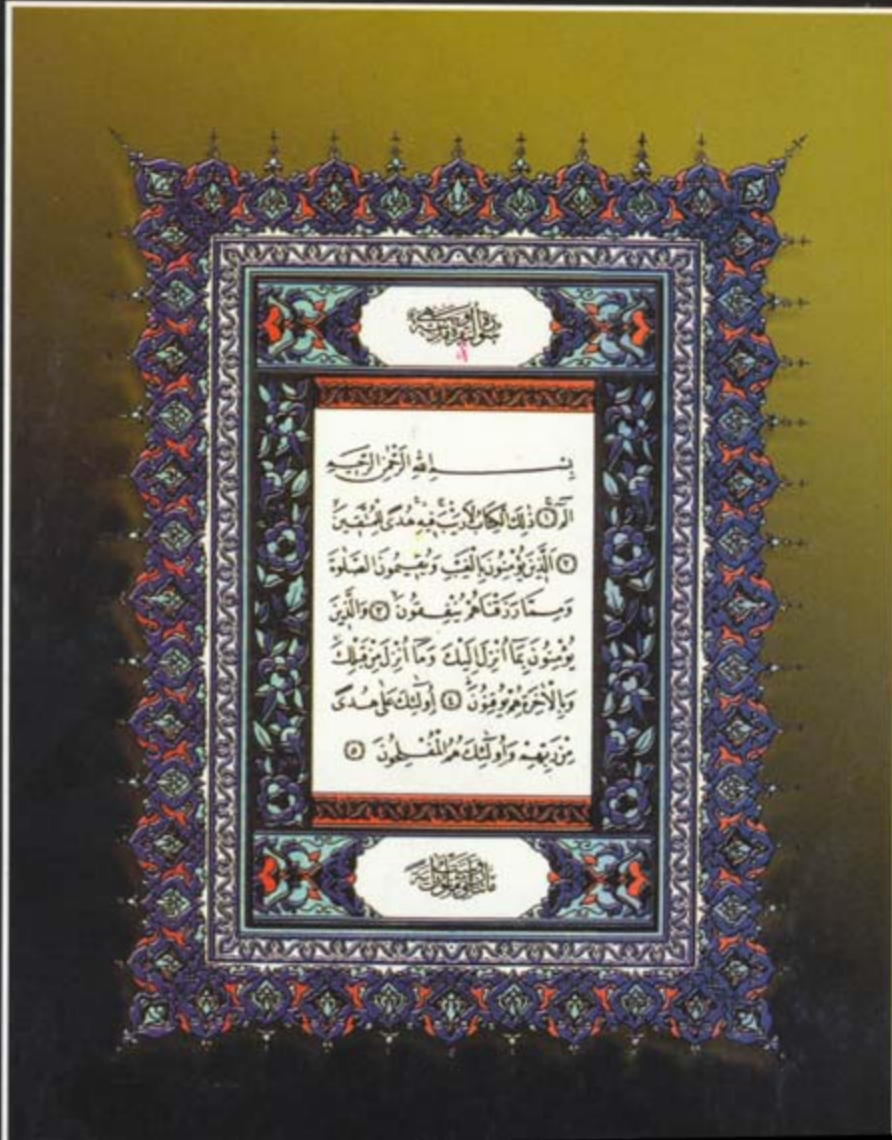 سورة البقرة مدنية
بِسْمِ اللهِ الرَّحْمٰنِ الرَّحِيمِ
الٓمٓ ﴿١﴾ ذٰلِكَ الْكِتَابُ لَا رَيْبَ فِيهِ هُدًى لِلْمُتَّقِينَ
﴿٢﴾ اَلَّذِينَ يُؤْمِنُونَ بِالْغَيْبِ وَيُقِيمُونَ الصَّلٰوةَ
وَمِمَّا رَزَقْنَاهُمْ يُنْفِقُونَ ﴿٣﴾ وَالَّذِينَ
يُؤْمِنُونَ بِمَٓا اُنْزِلَ اِلَيْكَ وَمَٓا اُنْزِلَ مِنْ قَبْلِكَ
وَبِالْاٰخِرَةِ هُمْ يُوقِنُونَ ﴿٤﴾ اُولٰٓئِكَ عَلٰى هُدًى
مِنْ رَبِّهِمْ وَاُولٰٓئِكَ هُمُ الْمُفْلِحُونَ ﴿٥﴾